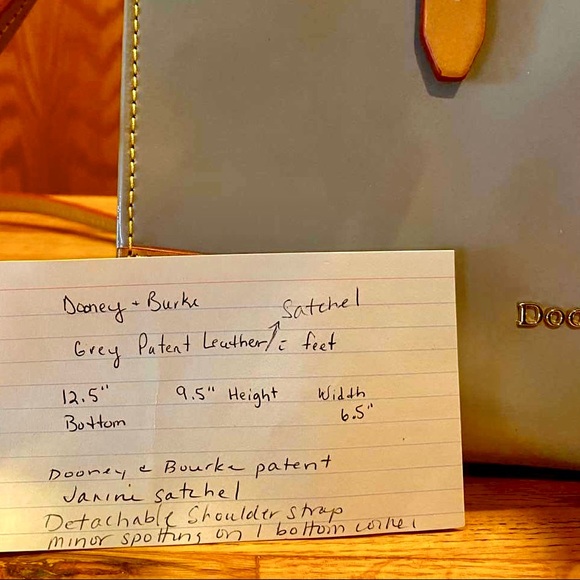 Dooney + Burke
Satchel
Grey Patent Leather/ c feet
12.5" 9.5" Height Width
Bottom 6.5"
Dooney & Bourke patent
Janine satchel
Detachable Shoulder strap
minor spotting on 1 bottom corner
Doo